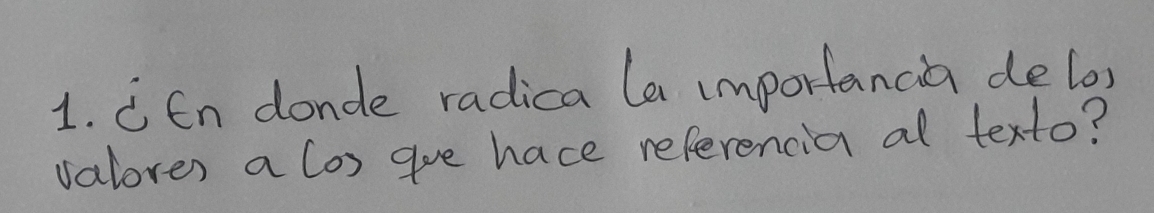 1. ¿En donde radica la importancia de los
valores a los que hace referencia al texto?